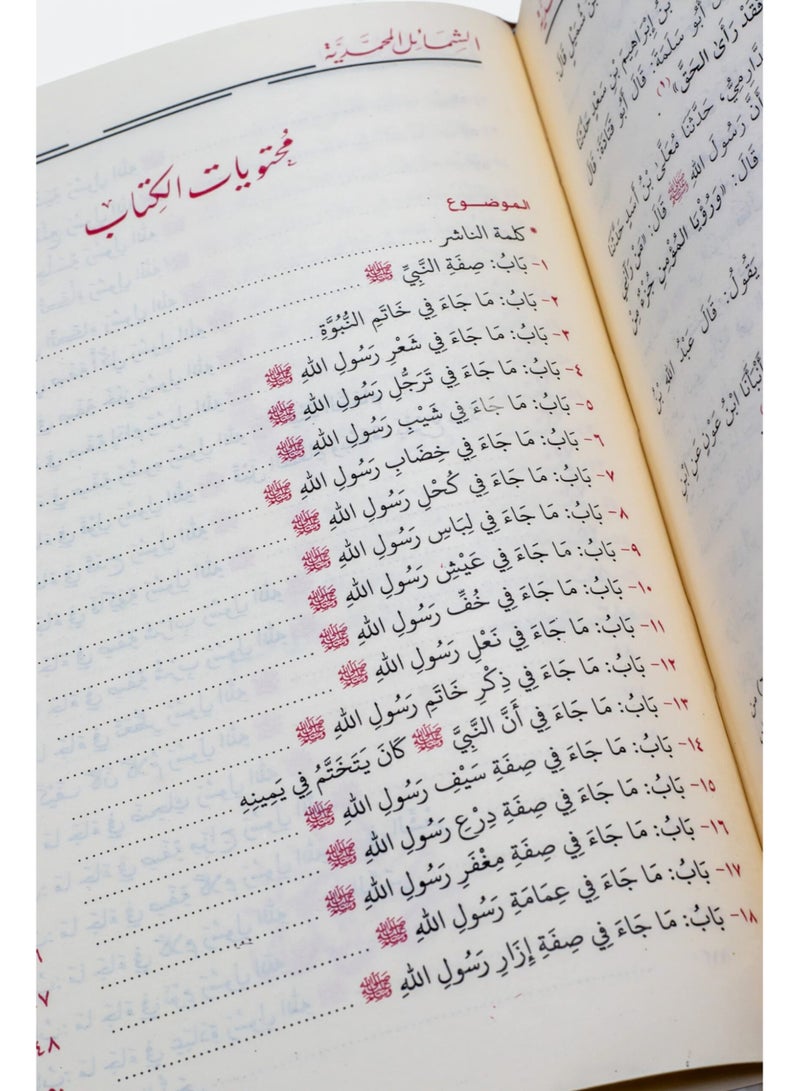 الشمائل المحمدية
محتويات الكتاب
الموضوع
* كلمة الناشر
١- بَابُ: صِفَةِ النَّبِيِّ ﷺ
٢- بَابُ: مَا جَاءَ فِي خَاتَمِ النُّبُوَّةِ
٣- بَابُ: مَا جَاءَ فِي شَعْرِ رَسُولِ اللهِ ﷺ
٤- بَابُ: مَا جَاءَ فِي تَرَجُّلِ رَسُولِ اللهِ ﷺ
٥- بَابُ: مَا جَاءَ فِي شَيْبِ رَسُولِ اللهِ ﷺ
٦- بَابُ: مَا جَاءَ فِي خِضَابِ رَسُولِ اللهِ ﷺ
٧- بَابُ: مَا جَاءَ فِي كُحْلِ رَسُولِ اللهِ ﷺ
٨- بَابُ: مَا جَاءَ فِي لِبَاسِ رَسُولِ اللهِ ﷺ
٩- بَابُ: مَا جَاءَ فِي عَيْشِ رَسُولِ اللهِ ﷺ
١٠- بَابُ: مَا جَاءَ فِي خُفِّ رَسُولِ اللهِ ﷺ
١١- بَابُ: مَا جَاءَ فِي نَعْلِ رَسُولِ اللهِ ﷺ
١٢- بَابُ: مَا جَاءَ فِي ذِكْرِ خَاتَمِ رَسُولِ اللهِ ﷺ
١٣- بَابُ: مَا جَاءَ فِي أَنَّ النَّبِيَّ ﷺ كَانَ يَتَخَتَّمُ فِي يَمِينِهِ
١٤- بَابُ: مَا جَاءَ فِي صِفَةِ سَيْفِ رَسُولِ اللهِ ﷺ
١٥- بَابُ: مَا جَاءَ فِي صِفَةِ دِرْعِ رَسُولِ اللهِ ﷺ
١٦- بَابُ: مَا جَاءَ فِي صِفَةِ مِغْفَرِ رَسُولِ اللهِ ﷺ
١٧- بَابُ: مَا جَاءَ فِي عِمَامَةِ رَسُولِ اللهِ ﷺ
١٨- بَابُ: مَا جَاءَ فِي صِفَةِ إِزَارِ رَسُولِ اللهِ ﷺ
بْنُ إِبْرَاهِيمَ بْنِ سَعْدٍ حَدَّثَنَا
أَبُو سَلَمَةَ: قَالَ أَبُو قَتَادَةَ: قَالَ
فَقَدْ رَأَى الحَقَّ» (١)
حَدَّثَنَا مُعَلَّى بْنُ أَسَدٍ حَدَّثَنَا
أَنَّ رَسُولَ اللهِ ﷺ قَالَ: «مَنْ رَآنِي
قَالَ: «وَرُؤْيَا المُؤْمِنِ جُزْءٌ مِنْ
يَقُولُ: قَالَ عَبْدُ اللهِ بْنُ
أَنْبَأَنَا ابْنُ عَوْنٍ عَنِ ابْنِ